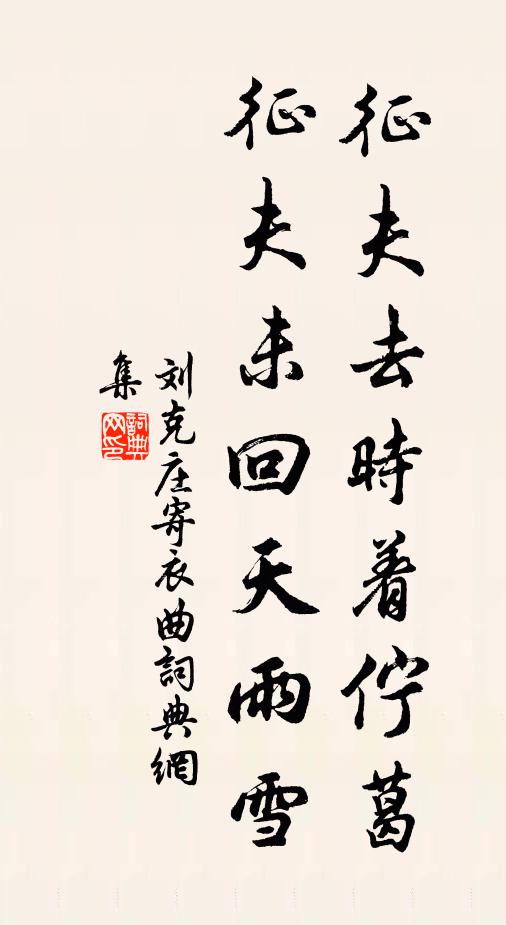 征夫去時着佇葛
征夫未回天雨雪
刘克庄寄衣曲詞典網
集
詞典网印